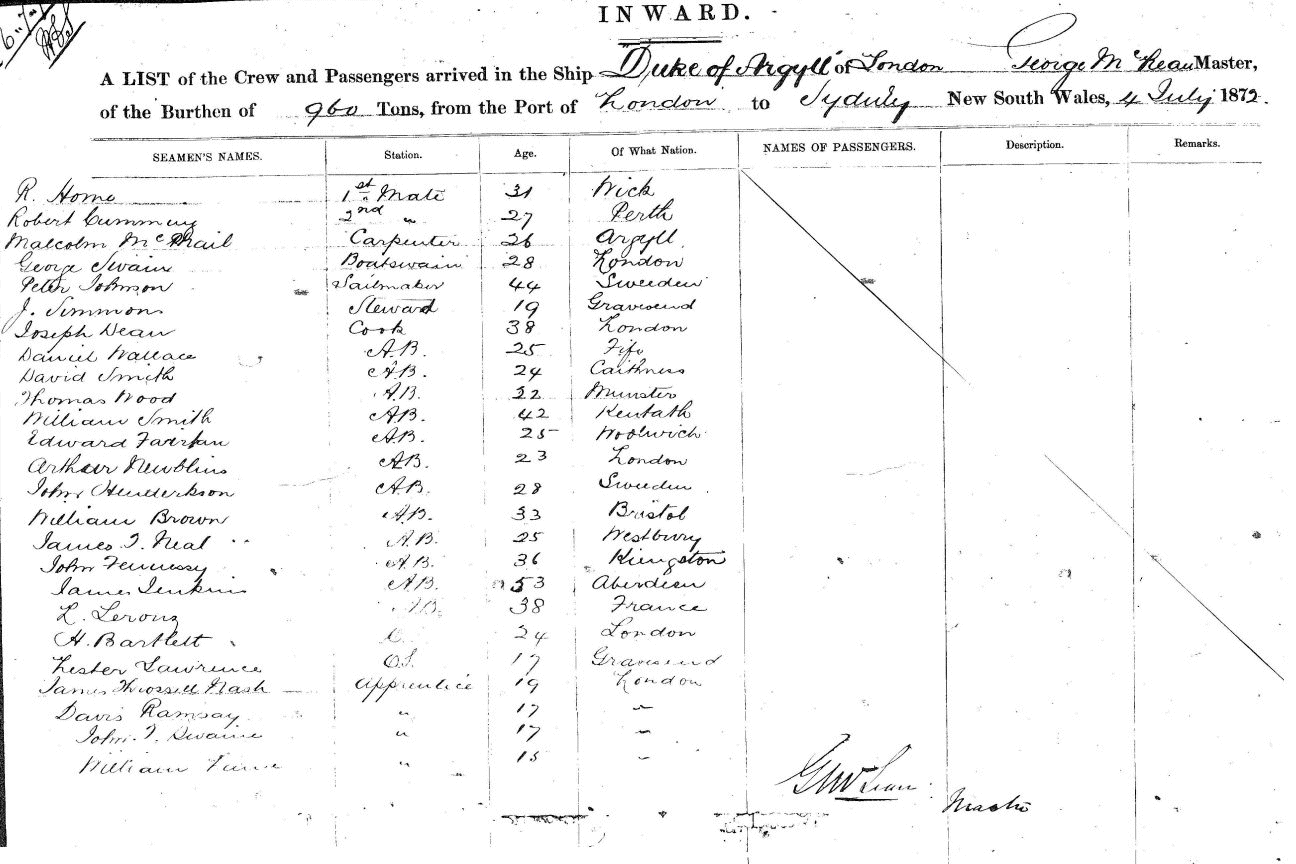 INWARD.
A LIST of the Crew and Passengers arrived in the Ship Duke of Argyll of London George McLean Master,
of the Burthen of 960 Tons, from the Port of London to Sydney New South Wales, 4 July 1872.
SEAMEN'S NAMES. Station. Age. Of What Nation. NAMES OF PASSENGERS. Description. Remarks.
R. Home 1st Mate 31 Wick
Robert Cumming 2nd " 27 Perth
Malcolm McPhail Carpenter 26 Argyll
George Swain Boatswain 28 London
Peter Johnson Sailmaker 44 Sweeden
J. Simmons Steward 19 Gravesend
Joseph Dean Cook 38 London
Daniel Wallace A.B. 25 Fife
David Smith A.B. 24 Caithness
Thomas Wood A.B. 22 Munster
William Smith A.B. 42 
Edward A.B. 25 Woolwich
Arthur A.B. 23 London
John Henderkson A.B. 28 Sweeden
William Brown A.B. 33 Bristol
James T. Neal A.B. 25 Westbury
John Fennessy A.B. 36 Kingston
James Jenkins A.B. 53 Aberdeen
L. A.B. 38 France
H. Bartlett 24 London
Lester Lawrence O.S. 17 Gravesend
James Throssell Nash Apprentice 19 London
Davis Ramsay " 17 "
John T. Swaine " 17 "
William " 15 "
GMcLean Master